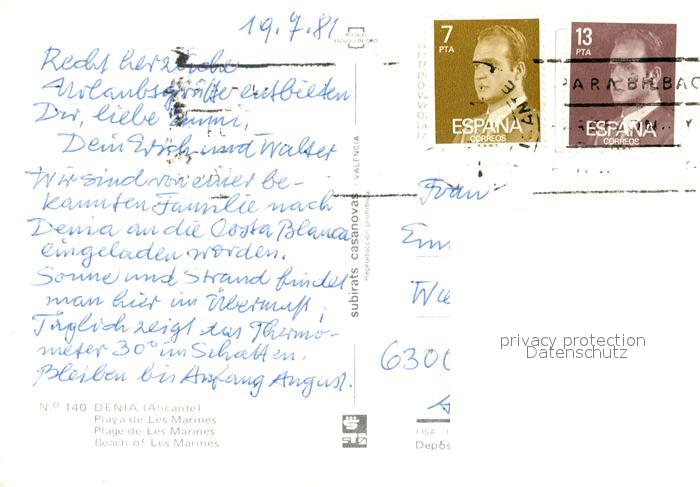 19.7.81
Recht herzliche
Urlaubsgrüße entbieten
Dir, liebe
Dein Erich und Walter
Wir sind von einer be-
kannten Familie nach
Denia an die Costa Blanca
eingeladen worden.
Sonne und Strand findet
man hier im Übermaß;
Täglich zeigt das Thermo-
meter 30° im Schatten.
Bleiben bis Anfang August.
N.º 140 DENIA (Alicante)
Playa de Les Marines
Plage de Les Marines
Beach of Les Marines
subirats casanovas - VALENCIA
Reproducción prohibida
7
PTA
ESPAÑA
CORREOS
13
PTA
ESPAÑA
CORREOS
PARA BILBAO
Frau
630
privacy protection
Datenschutz
FISA
Depós